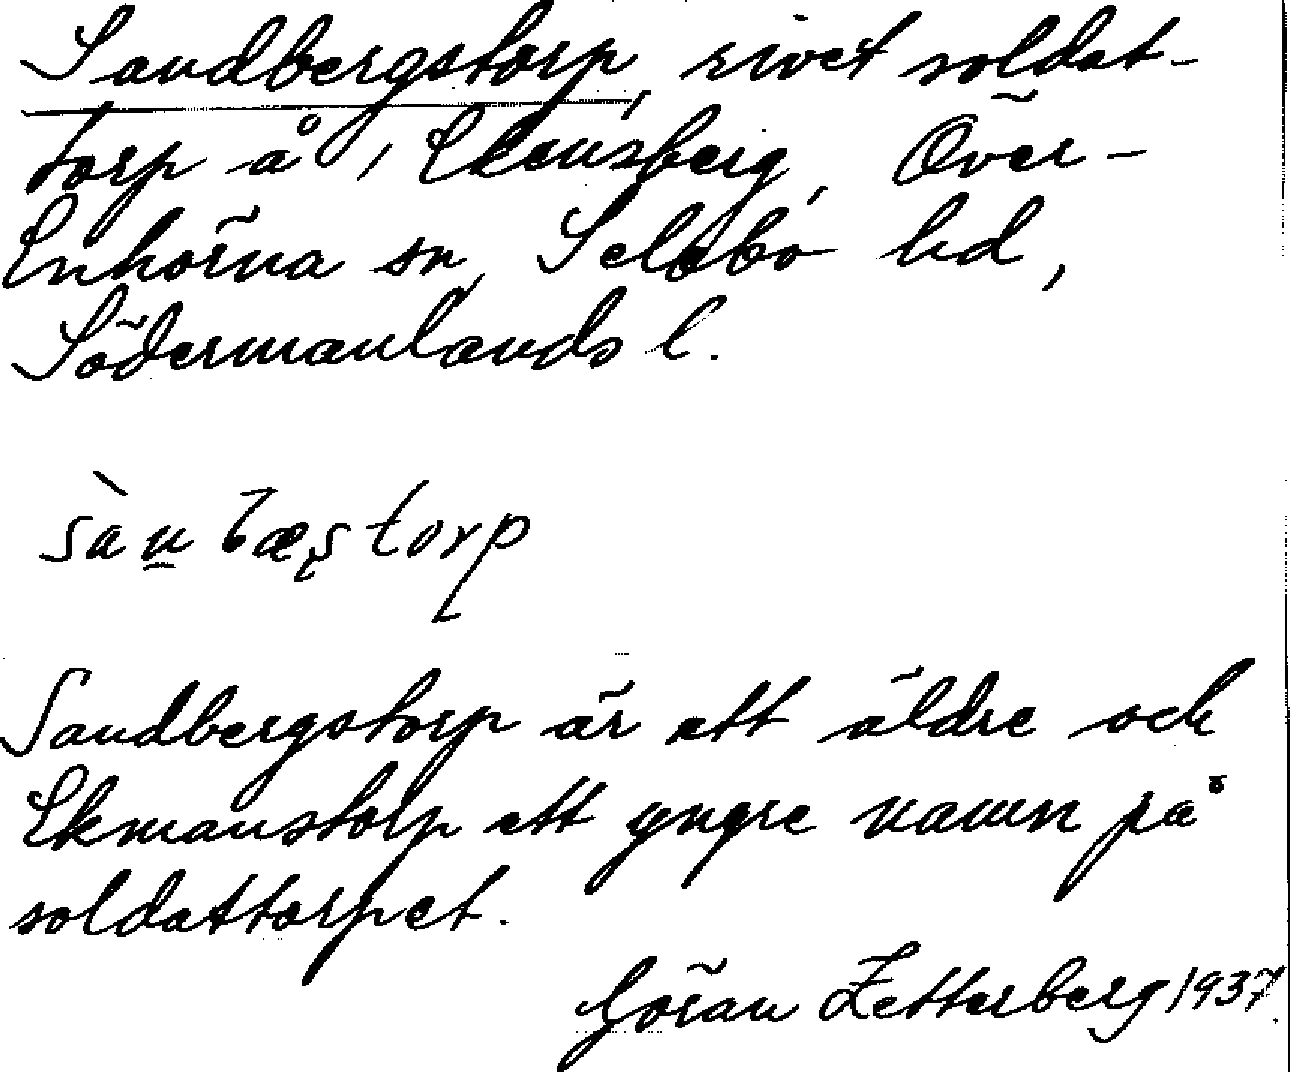 Sandbergstorp, rivet soldat-
torp å, Ekensberg, Över-
Enhörna sn, Selebo hd,
Södermanlands l.
Sandbergstorp är ett äldre och
Ekmanstorp ett yngre namn på
soldattorpet.
Göran Zetterberg 1937.